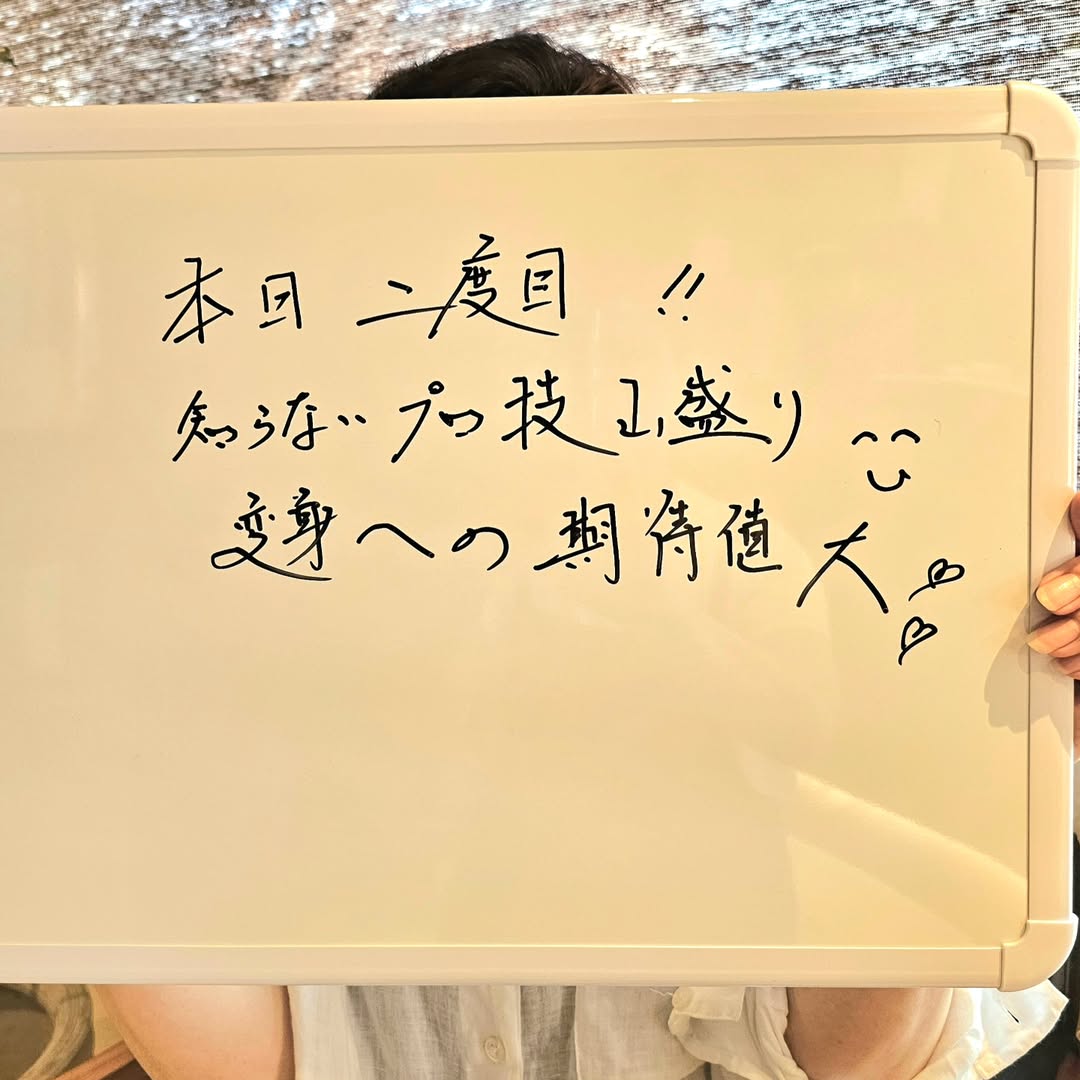 本日 二度目 !!
知らないプロ技山盛り
変身への期待値大